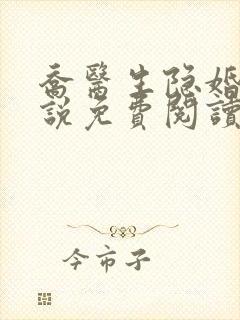 喬醫生隐婚
說免費閱讀
今市子